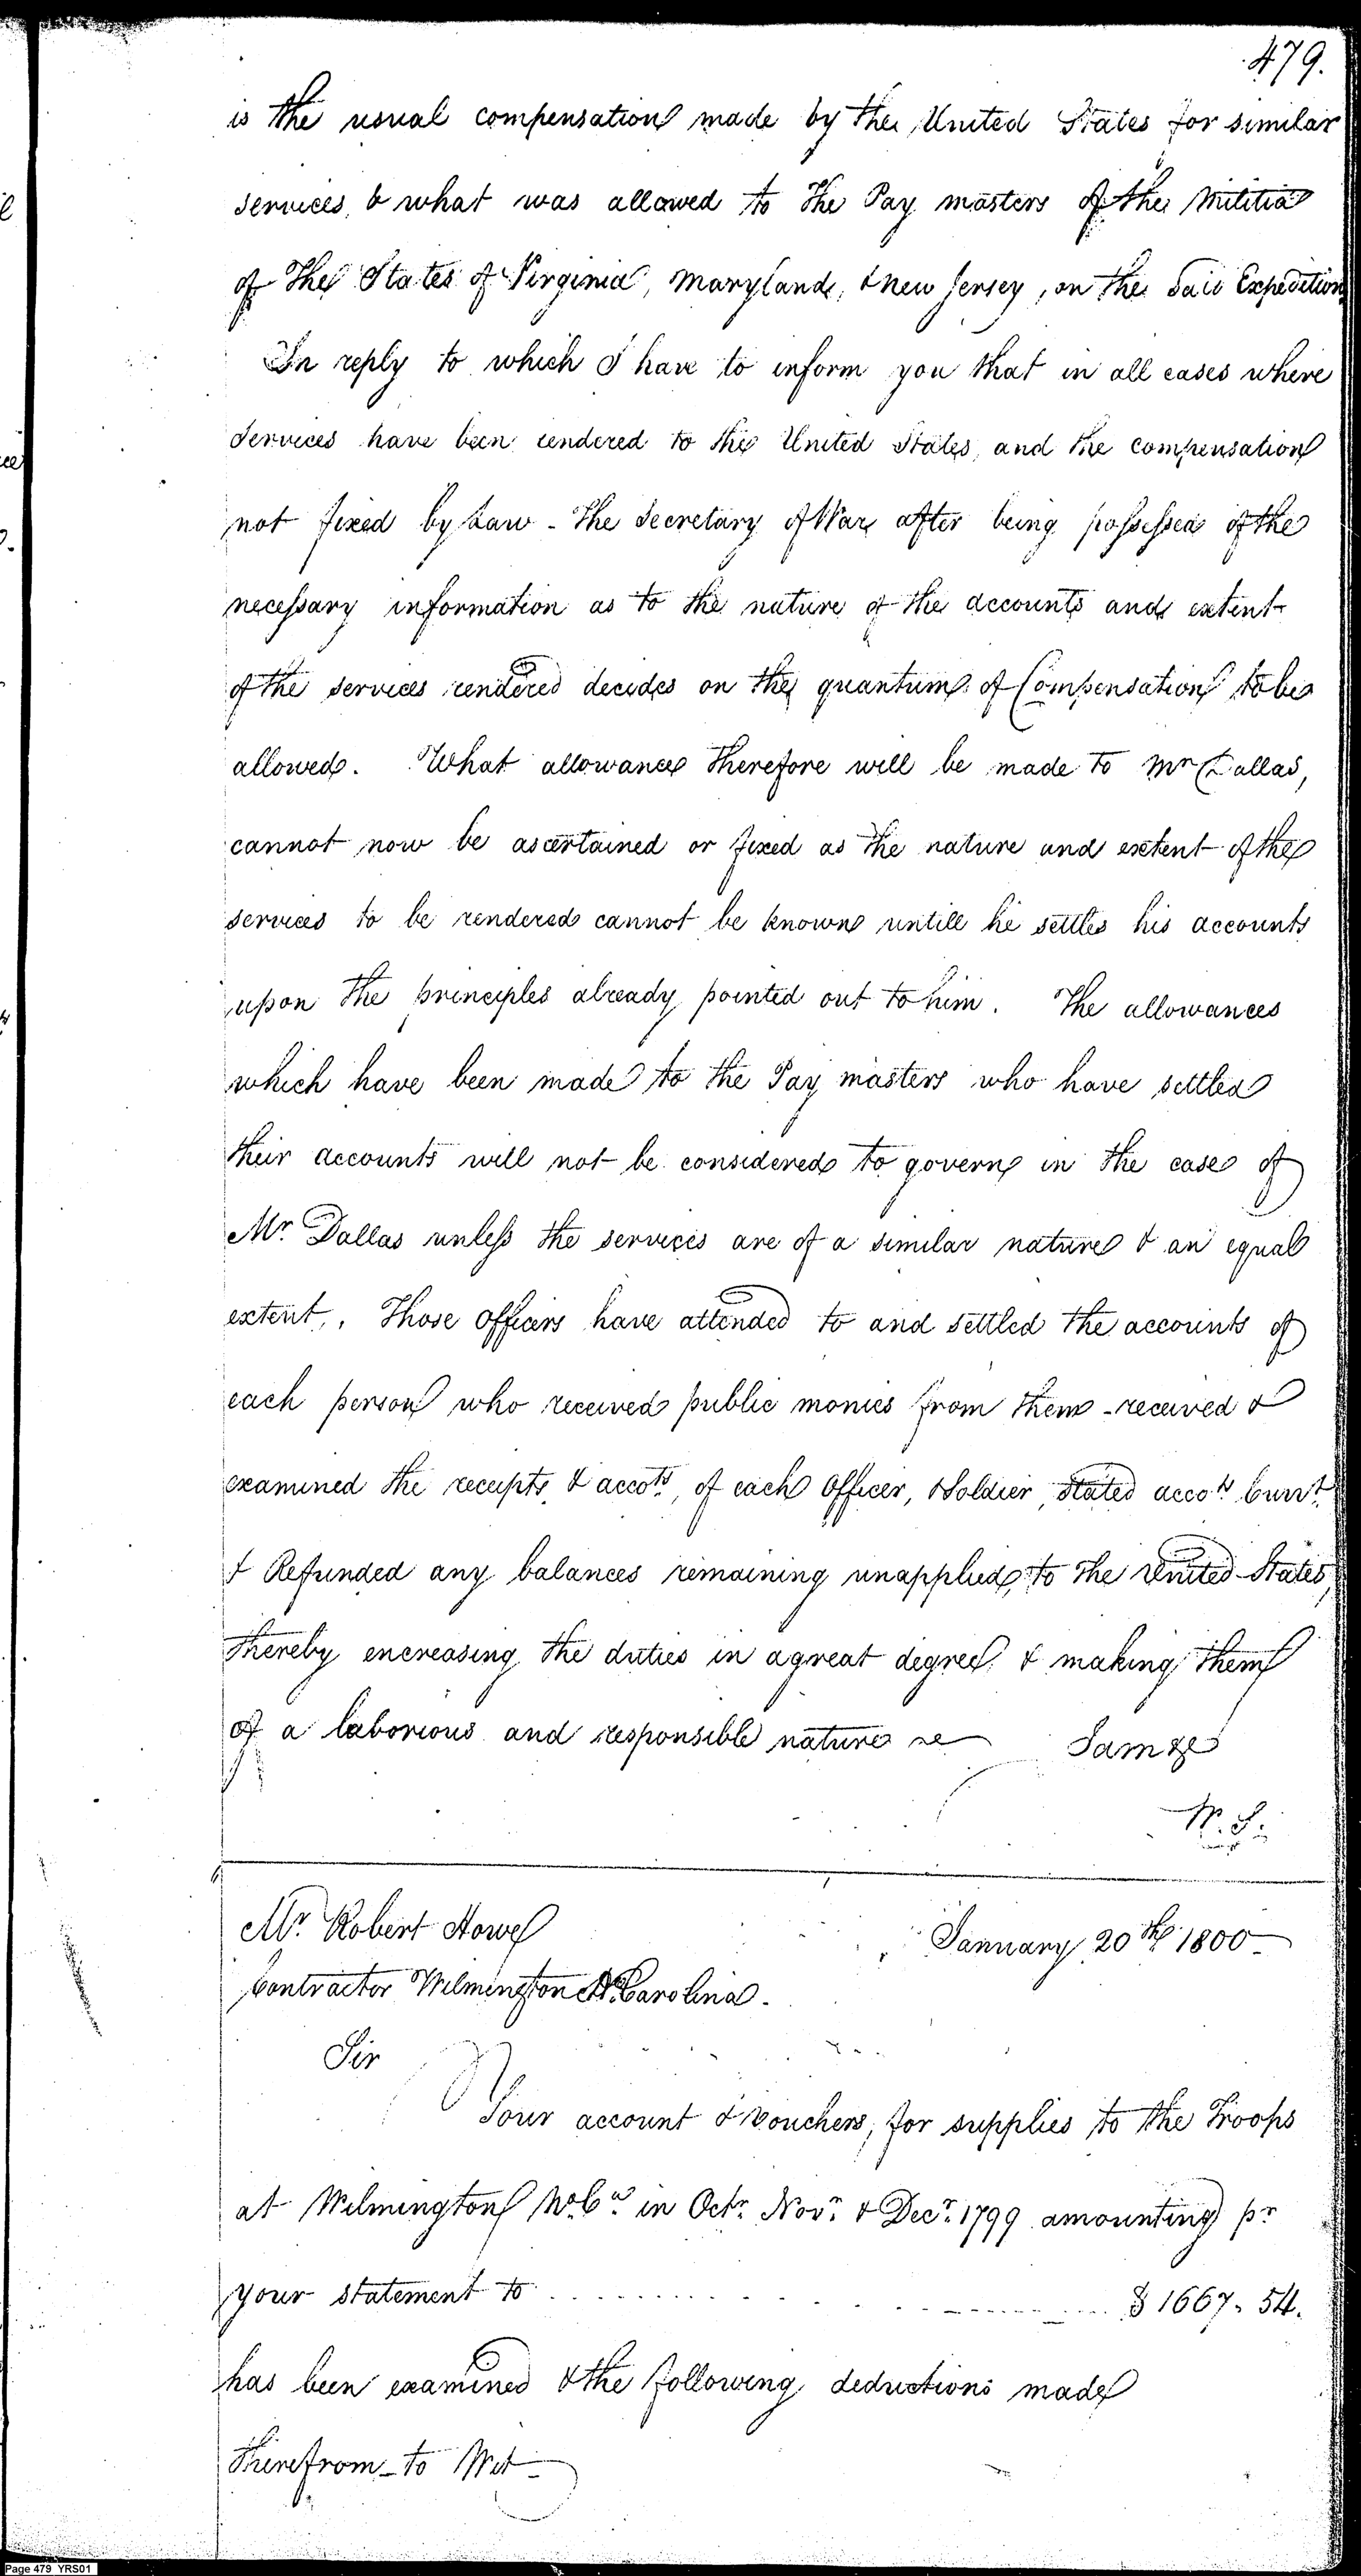 479.
is the usual compensation made by the United States for similar
services, & what was allowed to the Pay masters of the Militia
of The States of Virginia, Maryland, & New Jersey, on the said Expedition
In reply to which I have to inform you that in all cases where
services have been rendered to the United States, and the compensation
not fixed by Law - The Secretary of War after being possessed of the
necessary information as to the nature of the accounts and extent
of the services rendered decides on the quantum of Compensation to be
allowed. What allowance therefore will be made to Mr Dallas,
cannot now be ascertained or fixed as the nature and extent of the
services to be rendered cannot be known untill he settles his accounts
upon the principles already pointed out to him. The allowances
which have been made to the Pay masters who have settled
their accounts will not be considered to govern in the case of
Mr. Dallas unless the services are of a similar nature & an equal
extent. Those Officers have attended to and settled the accounts of
each person who received public monies from them - received &
examined the receipts & accots, of each Officer, & Soldier, stated accots Currt
& Refunded any balances remaining unapplied, to the United States,
thereby encreasing the duties in a great degree, & making them
of a laborious and responsible nature I am &c
W. S.
Mr. Robert Howe January 20th 1800
Contractor Wilmington No. Carolina.
Sir
Your account & vouchers, for supplies to the Troops
at Wilmington No Ca in Octr. Novr. & Decr. 1799 amounting pr
your statement to $ 1667. 54.
has been examined & the following deductions made
Therefrom - to Wit -
Page 479 YRS01